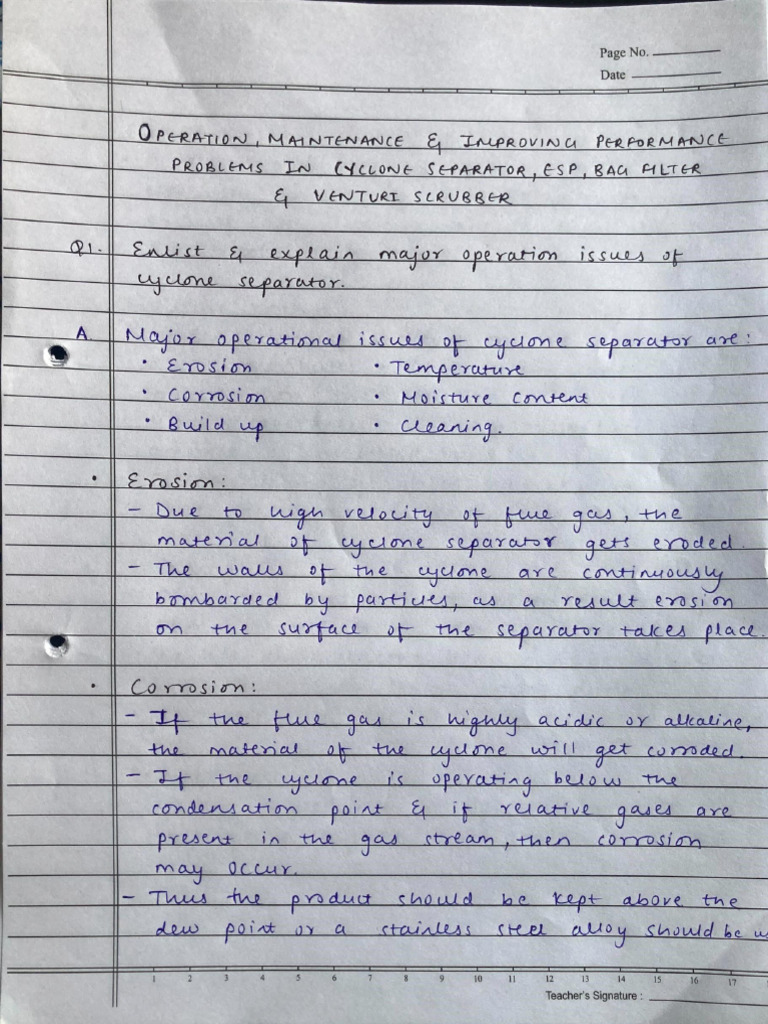 Page No.
Date
OPERATION, MAINTENANCE & IMPROVING PERFORMANCE
PROBLEMS IN CYCLONE SEPARATOR, ESP, BAG FILTER
& VENTURI SCRUBBER
Q1. Enlist & explain major operation issues of
cyclone separator.
A. Major operational issues of cyclone separator are:
• Erosion • Temperature
• Corrosion • Moisture content
• Build up • Cleaning.
• Erosion:
- Due to high velocity of flue gas, the
material of cyclone separator gets eroded.
- The walls of the cyclone are continuously
bombarded by particles, as a result erosion
on the surface of the separator takes place.
• Corrosion:
- If the flue gas is highly acidic or alkaline,
the material of the cyclone will get corroded.
- If the cyclone is operating below the
condensation point & if relative gases are
present in the gas stream, then corrosion
may occur.
- Thus the product should be kept above the
dew point or a stainless steel alloy should be
1 2 3 4 5 6 7 8 9 10 11 12 13 14 15 16 17
Teacher's Signature :